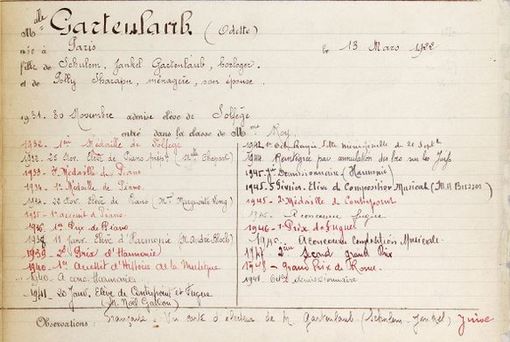 Mlle Gartenlaub (Odette)
née à Paris le 13 Mars 1922
fille de Schulem, Jankel Gartenlaub, horloger
et de Polly ménagère, son épouse
1931. 30 Novembre admise élève de Solfège
entré dans la classe de Mme Roy
1932 - 1re Médaille de Solfège
1932. 25 Nov. Elève de Piano (Mlle Chaperon)
1933 - Médaille de Piano
1934 - 1e Médaille de Piano
Nov. Elève de Piano (Mme Marguerite Long)
1935 - 1e accessit de Piano
1936 - 1er Prix de Piano
Janv. Elève d'Harmonie (M. André Bloch)
1939 - 2d Prix d'Harmonie
1940 - 1er Accessit d'Histoire de la Musique
1940 A conc. Harmonie
1941 20 Janv. Elève de Contrepoint et Fugue
(M. Noël Gallon)
1942 1er Oct. Rayée
Réintégrée par annulation des lois sur les Juifs
1945 Démissionnaire (Harmonie)
1945. 5 Février. Elève de Composition Musicale (M. H. Busser)
1945 - 2e Médaille de Contrepoint
A concouru fugue
1946 - 1er Prix de Fugue
A concouru Composition Musicale
1947 2ème Second Grand Prix
1948 - Grand Prix de Rome
démissionnaire
Observations : Française - Vu carte d'électeur de M. Gartenlaub (Schulem-Jankel) Juive